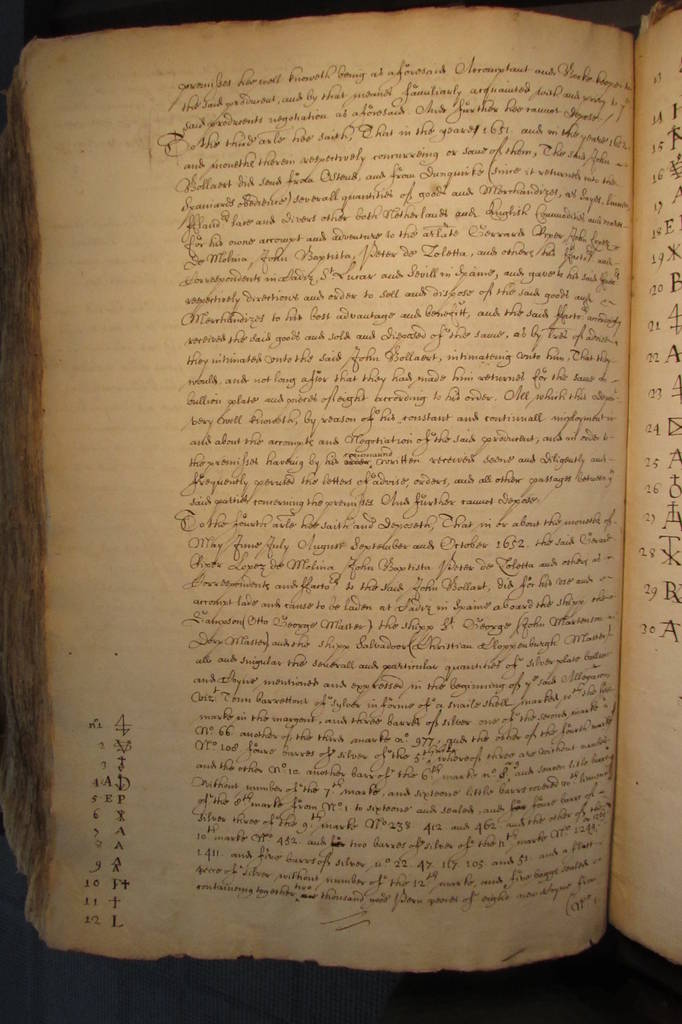 premisses hee well knoweth being as aforesaid Accomptant and Booke keeper to
the said producent, and by that meanes familiarly acquainted with and privy to ye
said producents negotiation as aforesaid. And further hee cannot depose./
To the third arle hee saith, That in the yeares 1651. and in the yeare 1652
and moneths therein respectively concurring or some of them, The said John
Bollaert did send from Ostend, and from Dunquirke (since it returned into the
Spaniards obedience) severall quantities of goods and Merchandizes, as Sayes,
ffland late and divers other both Netherlands and English Commodities
for his owne accompt and adventure to the arlate Gerrard Roper John Lopez
De Molina, John Baptista, Peter de Toletta, and others his ffactors and
Correspondents in Cadiz, St Lucar and Sevill in Spaine, and gave to his said
respectively directions and order to sell and dispose of the said goods and
Merchandizes to his best advantage and benefitt, and the said ffactors accordingly
received the said goods and sold and disposed of the same, as by lres of advice
they intimated unto the said John Bollaert, intimateing unto him, That they
would, and not long after that they had, made him returnes for the same in
bullion plate and peeces of eight according to his order. All which this
very well knoweth, by reason of his constant and continuall imployment in
and about the accompts and Negotiation of the said producent, and in order to
the premisses haveing by his command written received seene and diligently and
frequently perused the letters of advise, orders, and all other passages between ye
said parties concerning the premisses And further cannot depose.
To the fourth arle hee saith and deposeth, That in or about the moneths of
May June July August September and October 1652. the said Gerard
Roper Lopez de Molina John Baptista Peter de Toletta and others as
Correspondents and ffactors to the said John Bollart, did for his use and
accompt lade and cause to be laden at Cadiz in Spaine aboard the shipp the
Sampson (Otto George Master) the shipp St George (John Martenson
Dorp Master) and the shipp Salvador (Christian Cloppenburgh Master)
all and singular the severall and particular quantities of silver plate bullion
and Coyne mentioned and expressed in the beginning of ye said Allegation
vizt Tenn barrettons of sylver in forme of a snaile shell, marked with the first
marke in the margent, and three barres of silver one of the second marke
No. 66 another of the third marke no. 977. and the other of the fourth marke
No 108 foure barres of silver of the 5th marke whereof three are without number
and the other No 10 another barr of the 6th marke no 8. and seaven little barrs
without number of the 7th marke, and sixteene little barres covered
of the 8th marke from No 1 to sixteene and sealed, and foure barrs of
silver three of the 9th marke No 238. 412. and 462. and the other of the
10th marke No 452. and two barres of silver of the 11th marke No 1249.
1411. and five barrs of silver, no 22. 47. 117. 105. and 51. and a flatt
peece of silver without number of the 12th marke, and five baggs sealed
containing together two thousand peeces of eight
(No 1
no 1
2
3
4 A
5 E P
6
7 A
8 A
9
10
11
12 L
13
14
15
16
17
18 E
19
20 B
21
22 A
23
24
25 A
26
27
28
29
30 A